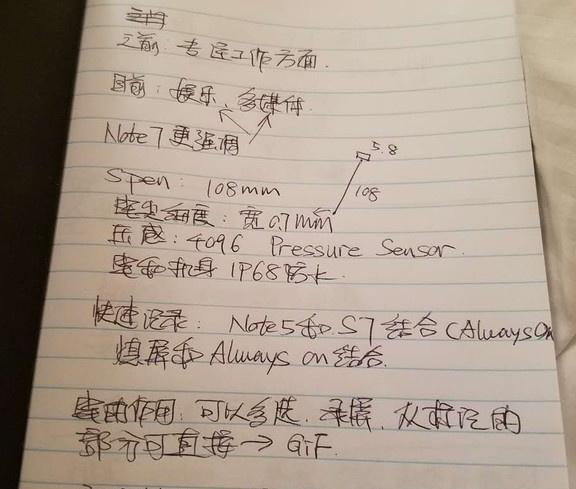 之前: 专注工作方面.
目前: 娱乐、多媒体
Note7更强调
5.8
Spen: 108mm
108
笔尖细度: 宽0.7mm
压感: 4096 Pressure Sensor.
笔和机身IP68防水.
快速记录: Note5和S7结合(Always On
熄屏和Always on结合.
笔的作用: 可以多选. 录屏. 从标记的
部分可直接→GiF.